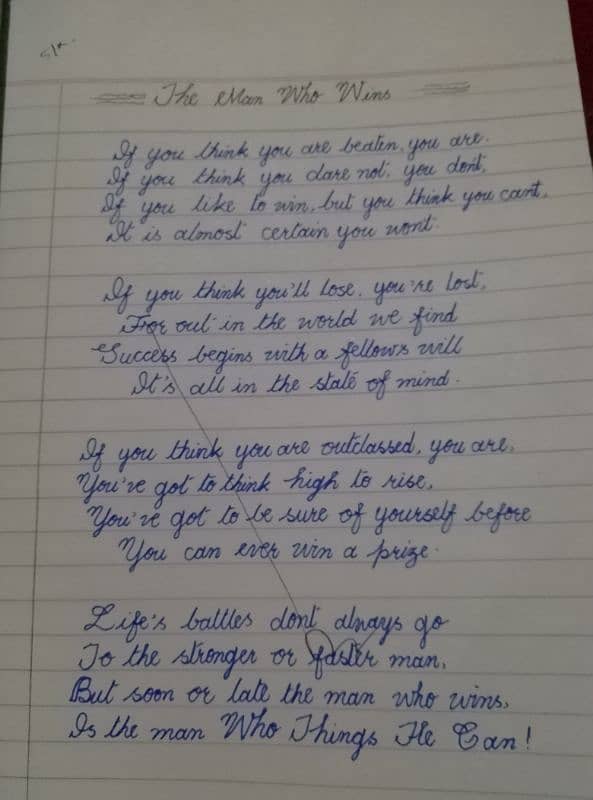 The Man Who Wins
If you think you are beaten, you are.
If you think you dare not, you dont,
If you like to win, but you think you cant,
It is almost certain you wont.
If you think you'll lose, you're lost,
For out in the world we find
Success begins with a fellows will
It's all in the state of mind.
If you think you are outclassed, you are,
You've got to think high to rise,
You've got to be sure of yourself before
You can ever win a prize.
Life's battles dont always go
To the stronger or faster man,
But soon or late the man who wins,
Is the man Who Things He Can!